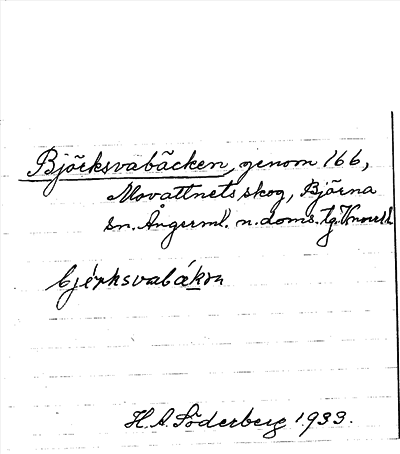 Björksvabäcken, genom 166,
Movattnets skog, Björna
sn. Ångerml. n. doms. tg.
bjérksvabákən
H. A. Söderberg 1933.